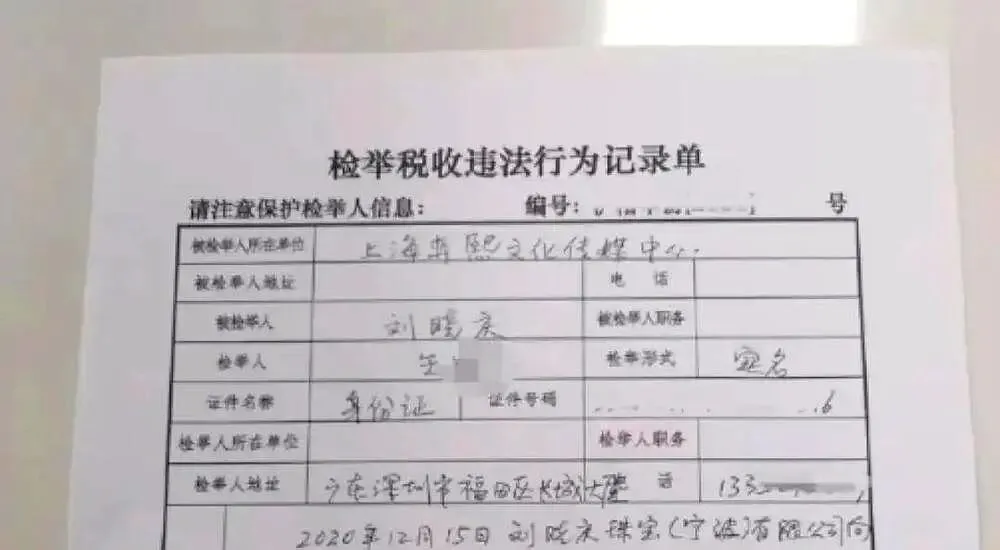 检举税收违法行为记录单
请注意保护检举人信息： 编号： 号
被检举人所在单位 上海 熙文化传媒中心
被检举人地址 电 话
被检举人 刘晓庆 被检举人职务
检举人 王 检举形式 实名
证件名称 身份证 证件号码 6
检举人所在单位 检举人职务
检举人地址 广东深圳市福田区长城大厦 话 133
2020年12月15日刘晓庆珠宝(宁波)有限公司向